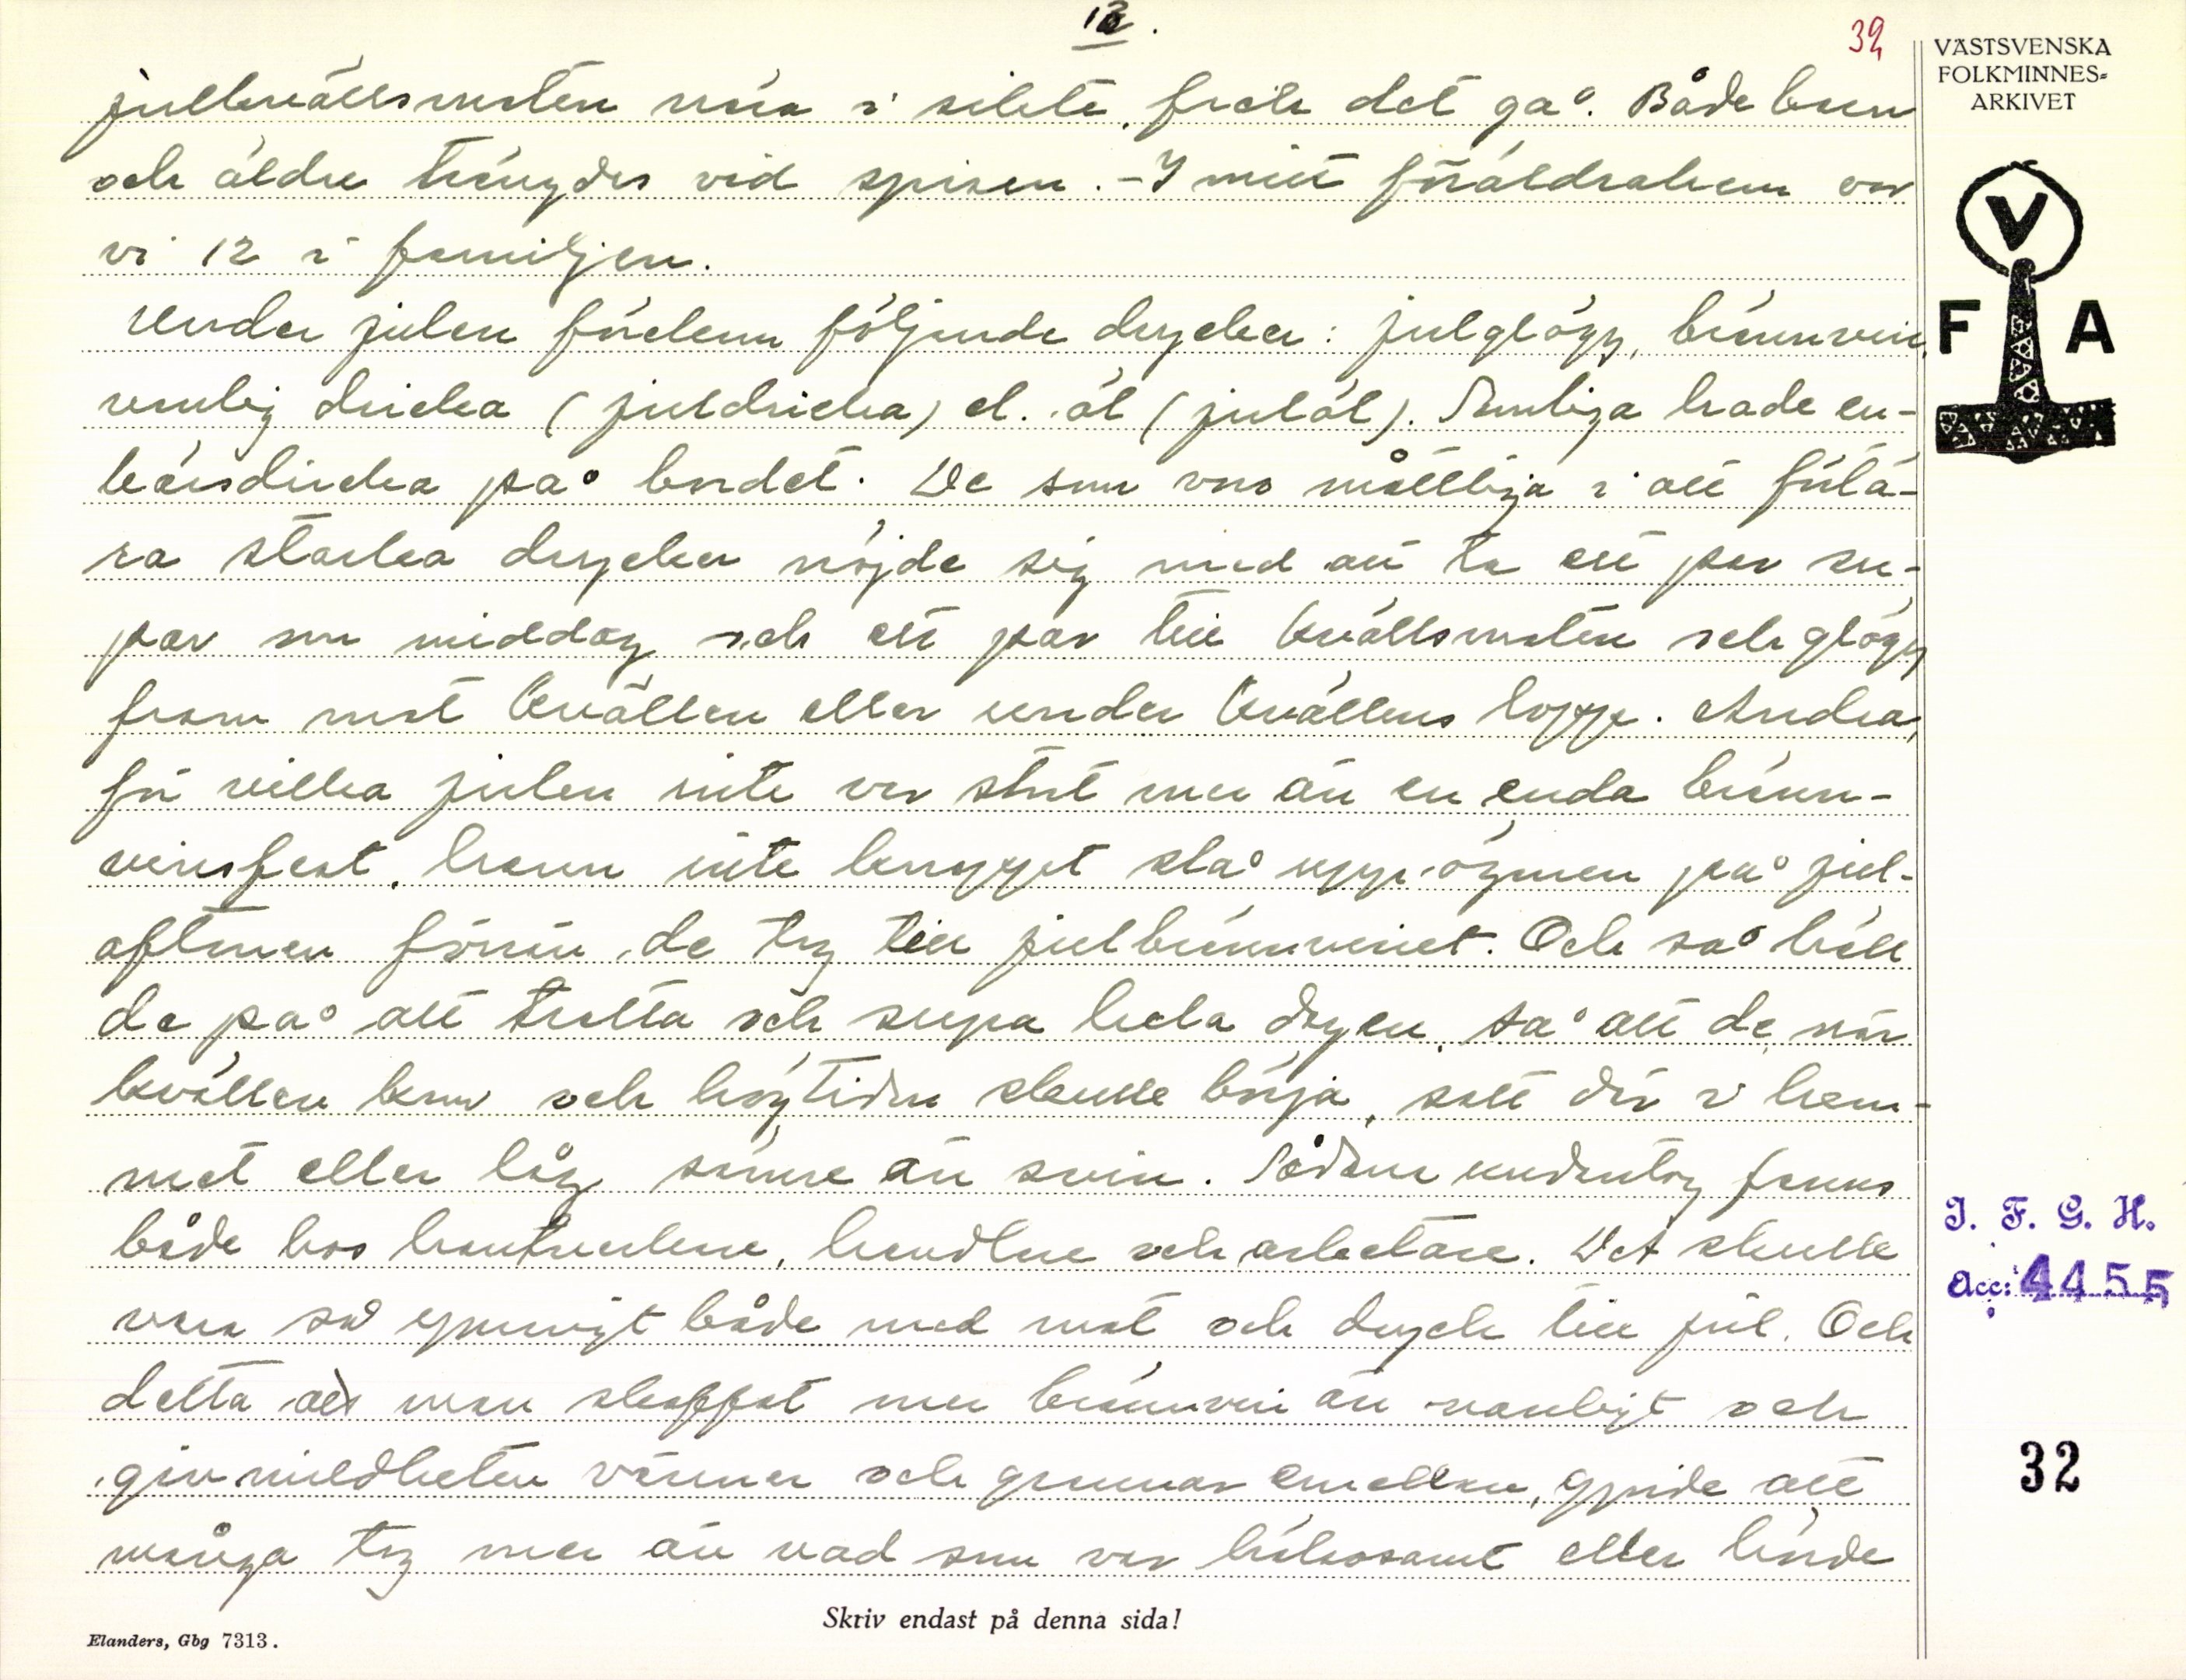 12.
39
VÄSTSVENSKA
FOLKMINNES-
ARKIVET
V
F A
julkvällsmaten vara i sikte, fick det gå. Både barn
och äldre trängdes vid spisen. - I mitt föräldrahem var
vi 12 i familjen.
Under julen förekom följande drycker: julglögg, brännvin,
vanlig dricka (juldricka) el. öl (julöl). Somliga hade en-
bärsdricka på bordet. De som voro måttliga i att förtä-
ra starka drycker nöjde sig med att ta ett par su-
par om middag och ett par till kvällsmaten och glögg
fram mot kvällen eller under kvällens lopp. Andra,
för vilka julen inte var stort mer än en enda bränn-
vinsfest, hann inte knappt slå upp ögonen på jul-
aftonen förrän de tog till julbrännvinet. Och så höll
de på att träta och supa hela dagen, så att de, när
kvällen kom och högtiden skulle börja, satt där i hem-
met eller låg sämre än svin. Sådana undantag fanns
både hos hantverkare, handlare och arbetare. Det skulle
vara så ymnigt både med mat och dryck till jul. Och
detta att man skaffat mer brännvin än vanligt och
givmildheten vänner och grannar emellan, gjorde att
många tog mer än vad som var hälsosamt eller lände
I. F. G. H.
Acc: 4455
32
Skriv endast på denna sida!
Elanders, Gbg 7313.